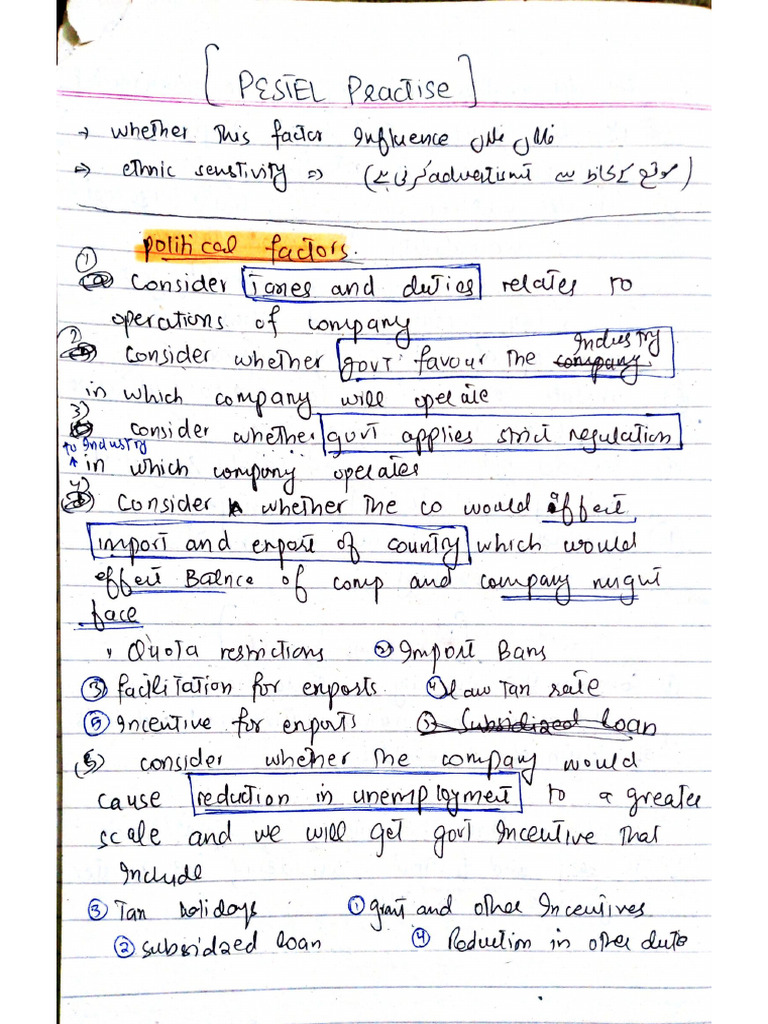 [PESTEL Practise]
→ whether this factor Influence فلاں فلاں
⇒ ethnic senstivity ⇒ ( advertismt سے موقع )
political factors.
① Consider Taxes and duties relates to
operations of company
2) Consider whether govt favour the Industry
in which company will operate
3) consider whether govt applies strict regulation
to Industry
in which company operates
4) Consider whether the co would affect
import and export of country which would
effect Balnce of comp and company might
face
1) Quota restrictions ② Import Bans
③ facilitation for exports ④ low Tax rate
⑤ Incentive for exports Subsidized loan
(5) consider whether the company would
cause reduction in unemployment to a greater
scale and we will get govt Incentive that
include
③ Tax holidays ① grant and other Incentives
② subsidized loan ④ Reduction in other dute